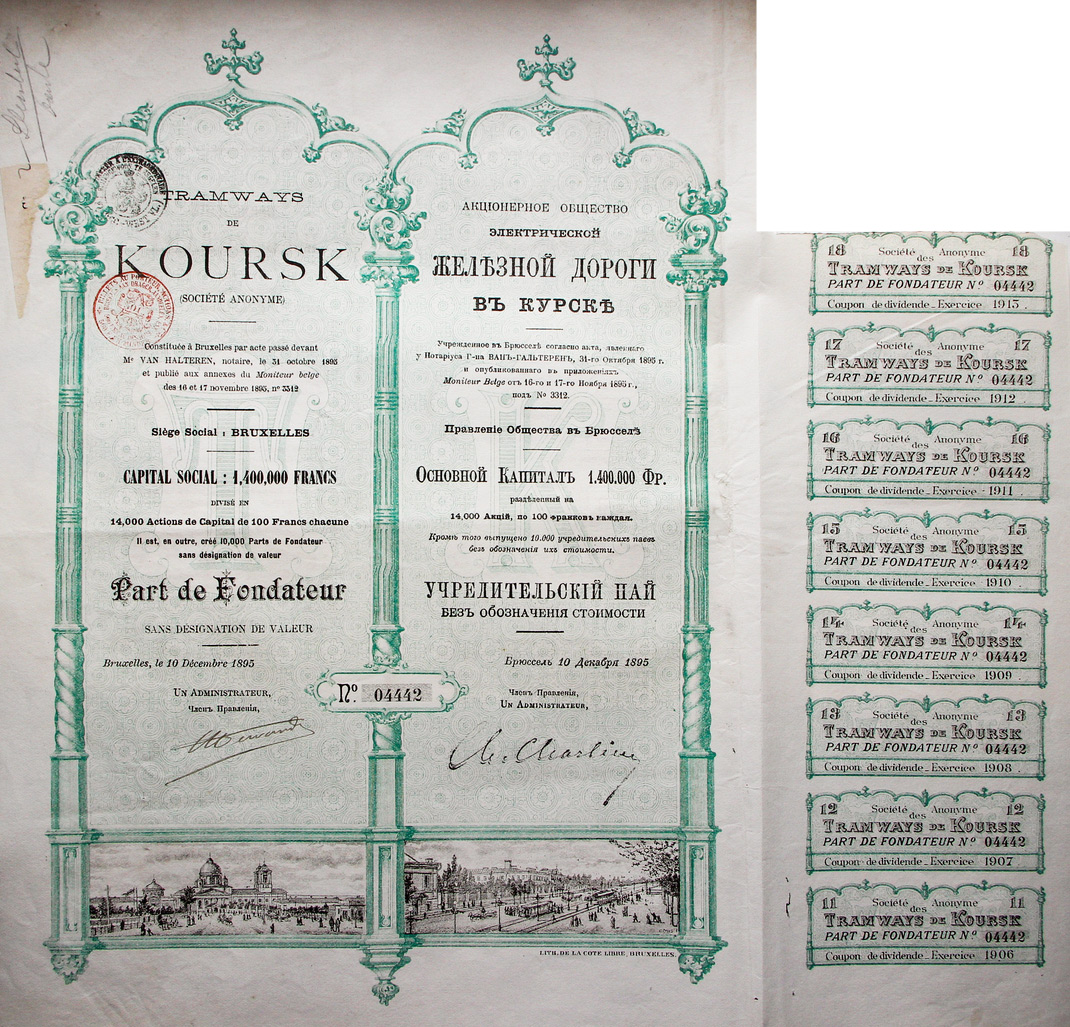 TRAMWAYS
DE
KOURSK
(SOCIÉTÉ ANONYME)
Constituée à Bruxelles par acte passé devant
Me VAN HALTEREN, notaire, le 31 octobre 1895
et publié aux annexes du Moniteur belge
des 16 et 17 novembre 1895, no 3312
Siège Social : BRUXELLES
CAPITAL SOCIAL : 1,400,000 FRANCS
DIVISÉ EN
14,000 Actions de Capital de 100 Francs chacune
Il est, en outre, créé 10,000 Parts de Fondateur
sans désignation de valeur
Part de Fondateur
SANS DÉSIGNATION DE VALEUR
Bruxelles, le 10 Décembre 1895
UN ADMINISTRATEUR,
Членъ Правленія,
АКЦІОНЕРНОЕ ОБЩЕСТВО
ЭЛЕКТРИЧЕСКОЙ
ЖЕЛѢЗНОЙ ДОРОГИ
ВЪ КУРСКѢ
Учрежденное въ Брюсселѣ согласно акта, явленнаго
у Нотаріуса Г-на ВАНЪ-ГАЛЬТЕРЕНЪ, 31-го Октября 1895 г.
и опубликованнаго въ приложеніяхъ
Moniteur Belge отъ 16-го и 17-го Ноября 1895 г.,
подъ No 3312.
Правленіе Общества въ Брюсселѣ
ОСНОВНОЙ КАПИТАЛЪ 1.400.000 ФР.
раздѣленный на
14,000 Акцій, по 100 франковъ каждая.
Кромѣ того выпущено 10.000 учредительскихъ паевъ
безъ обозначенія ихъ стоимости.
УЧРЕДИТЕЛЬСКІЙ ПАЙ
БЕЗЪ ОБОЗНАЧЕНІЯ СТОИМОСТИ
Брюссель 10 Декабря 1895
Членъ Правленія,
UN ADMINISTRATEUR,
No. 04442
LITH. DE LA COTE LIBRE, BRUXELLES.
18 Société Anonyme 18
des
TRAMWAYS DE KOURSK
PART DE FONDATEUR No 04442
Coupon de dividende_Exercice 1913
17 Société Anonyme 17
des
TRAMWAYS DE KOURSK
PART DE FONDATEUR No 04442
Coupon de dividende_Exercice 1912
16 Société Anonyme 16
des
TRAMWAYS DE KOURSK
PART DE FONDATEUR No 04442
Coupon de dividende_Exercice 1911
15 Société Anonyme 15
des
TRAMWAYS DE KOURSK
PART DE FONDATEUR No 04442
Coupon de dividende_Exercice 1910
14 Société Anonyme 14
des
TRAMWAYS DE KOURSK
PART DE FONDATEUR No 04442
Coupon de dividende_Exercice 1909
13 Société Anonyme 13
des
TRAMWAYS DE KOURSK
PART DE FONDATEUR No 04442
Coupon de dividende_Exercice 1908
12 Société Anonyme 12
des
TRAMWAYS DE KOURSK
PART DE FONDATEUR No 04442
Coupon de dividende_Exercice 1907
11 Société Anonyme 11
des
TRAMWAYS DE KOURSK
PART DE FONDATEUR No 04442
Coupon de dividende_Exercice 1906